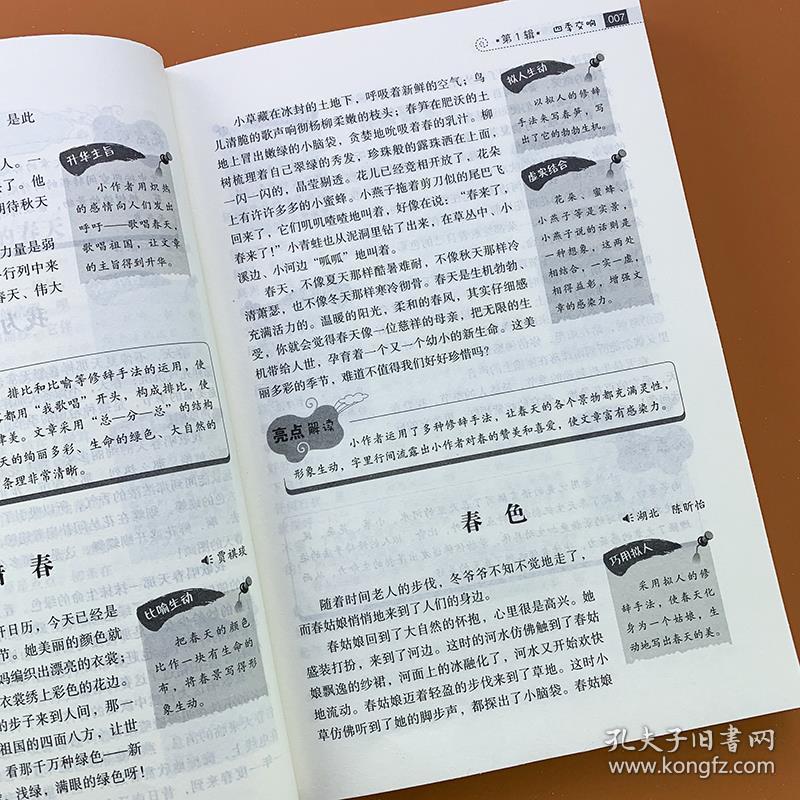 是此
人。一
了。他
期待秋天
升华主旨
小作者用炽热
的感情向人们发出
呼吁——歌唱春天,
歌唱祖国,让文章
的主旨得到升华。
力量是弱
行列中来
春天、伟大
排比和比喻等修辞手法的运用,使
都用“我歌唱”开头,构成排比,使
律美。文章采用“总—分—总”的结构
天的绚丽多彩、生命的绿色、大自然的
条理非常清晰。
春
贾祺琰
开日历,今天已经是
节。她美丽的颜色就
妈编织出漂亮的衣裳;
衣裳绣上彩色的花边。
的步子来到人间,那一
祖国的四面八方,让世
看那千万种绿色——新
浅绿,满眼的绿色呀!
比喻生动
把春天的颜色
比作一块有生命的
布,将春景写得形
象生动。
第1辑 四季交响 007
小草藏在冰封的土地下,呼吸着新鲜的空气;鸟
儿清脆的歌声响彻杨柳柔嫩的枝头;春笋在肥沃的土
地上冒出嫩绿的小脑袋,贪婪地吮吸着春的乳汁。柳
树梳理着自己翠绿的秀发,珍珠般的露珠洒在上面,
一闪一闪的,晶莹剔透。花儿已经竞相开放了,花朵
上有许许多多的小蜜蜂。小燕子拖着剪刀似的尾巴飞
回来了,它们叽叽喳喳地叫着,好像在说:“春来了,
春来了!”小青蛙也从泥洞里钻了出来,在草丛中、小
溪边、小河边“呱呱”地叫着。
春天,不像夏天那样酷暑难耐,不像秋天那样冷
清萧瑟,也不像冬天那样寒冷彻骨。春天是生机勃勃、
充满活力的。温暖的阳光,柔和的春风,其实仔细感
受,你就会觉得春天像一位慈祥的母亲,把无限的生
机带给人世,孕育着一个又一个幼小的新生命。这美
丽多彩的季节,难道不值得我们好好珍惜吗?
拟人生动
以拟人的修辞
手法来写春笋,写
出了它的勃勃生机。
虚实结合
花朵、蜜蜂、
小燕子等是实景,
小燕子说的话则是
一种想象,这两处
相结合,一实一虚,
相得益彰,增强文
章的感染力。
亮点解读
小作者运用了多种修辞手法,让春天的各个景物都充满灵性,
形象生动,字里行间流露出小作者对春的赞美和喜爱,使文章富有感染力。
春色
湖北 陈昕怡
随着时间老人的步伐,冬爷爷不知不觉地走了,
而春姑娘悄悄地来到了人们的身边。
春姑娘回到了大自然的怀抱,心里很是高兴。她
盛装打扮,来到了河边。这时的河水仿佛触到了春姑
娘飘逸的纱裙,河面上的冰融化了,河水又开始欢快
地流动。春姑娘迈着轻盈的步伐来到了草地。这时小
草仿佛听到了她的脚步声,都探出了小脑袋。春姑娘
巧用拟人
采用拟人的修
辞手法,使春天化
身为一个姑娘,生
动地写出春天的美。
孔夫子旧书网
www.kongfz.com